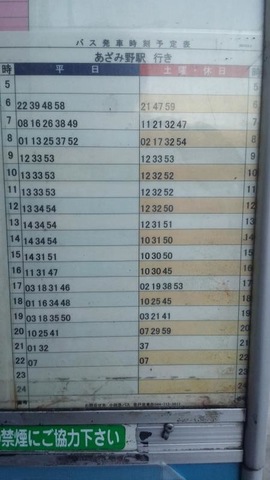 バス発車時刻予定表
あざみ野駅 行き
時 平日 土曜・休日 時
5 5
6 22 39 48 58 21 47 59 6
7 08 16 26 38 49 11 21 32 47 7
8 01 13 25 37 52 02 17 32 54 8
9 12 33 53 12 33 53 9
10 13 33 53 12 32 52 10
11 13 33 53 12 32 52 11
12 13 34 54 12 32 50 12
13 13 34 54 12 31 51 13
14 14 34 54 10 31 50 14
15 14 31 51 10 30 50 15
16 11 31 47 10 30 45 16
17 03 18 31 46 02 19 38 53 17
18 01 16 34 48 10 25 45 18
19 03 18 35 50 03 21 41 19
20 10 25 41 07 29 59 20
21 01 32 37 21
22 07 07 22
23 23
24 24
禁煙にご協力下さい